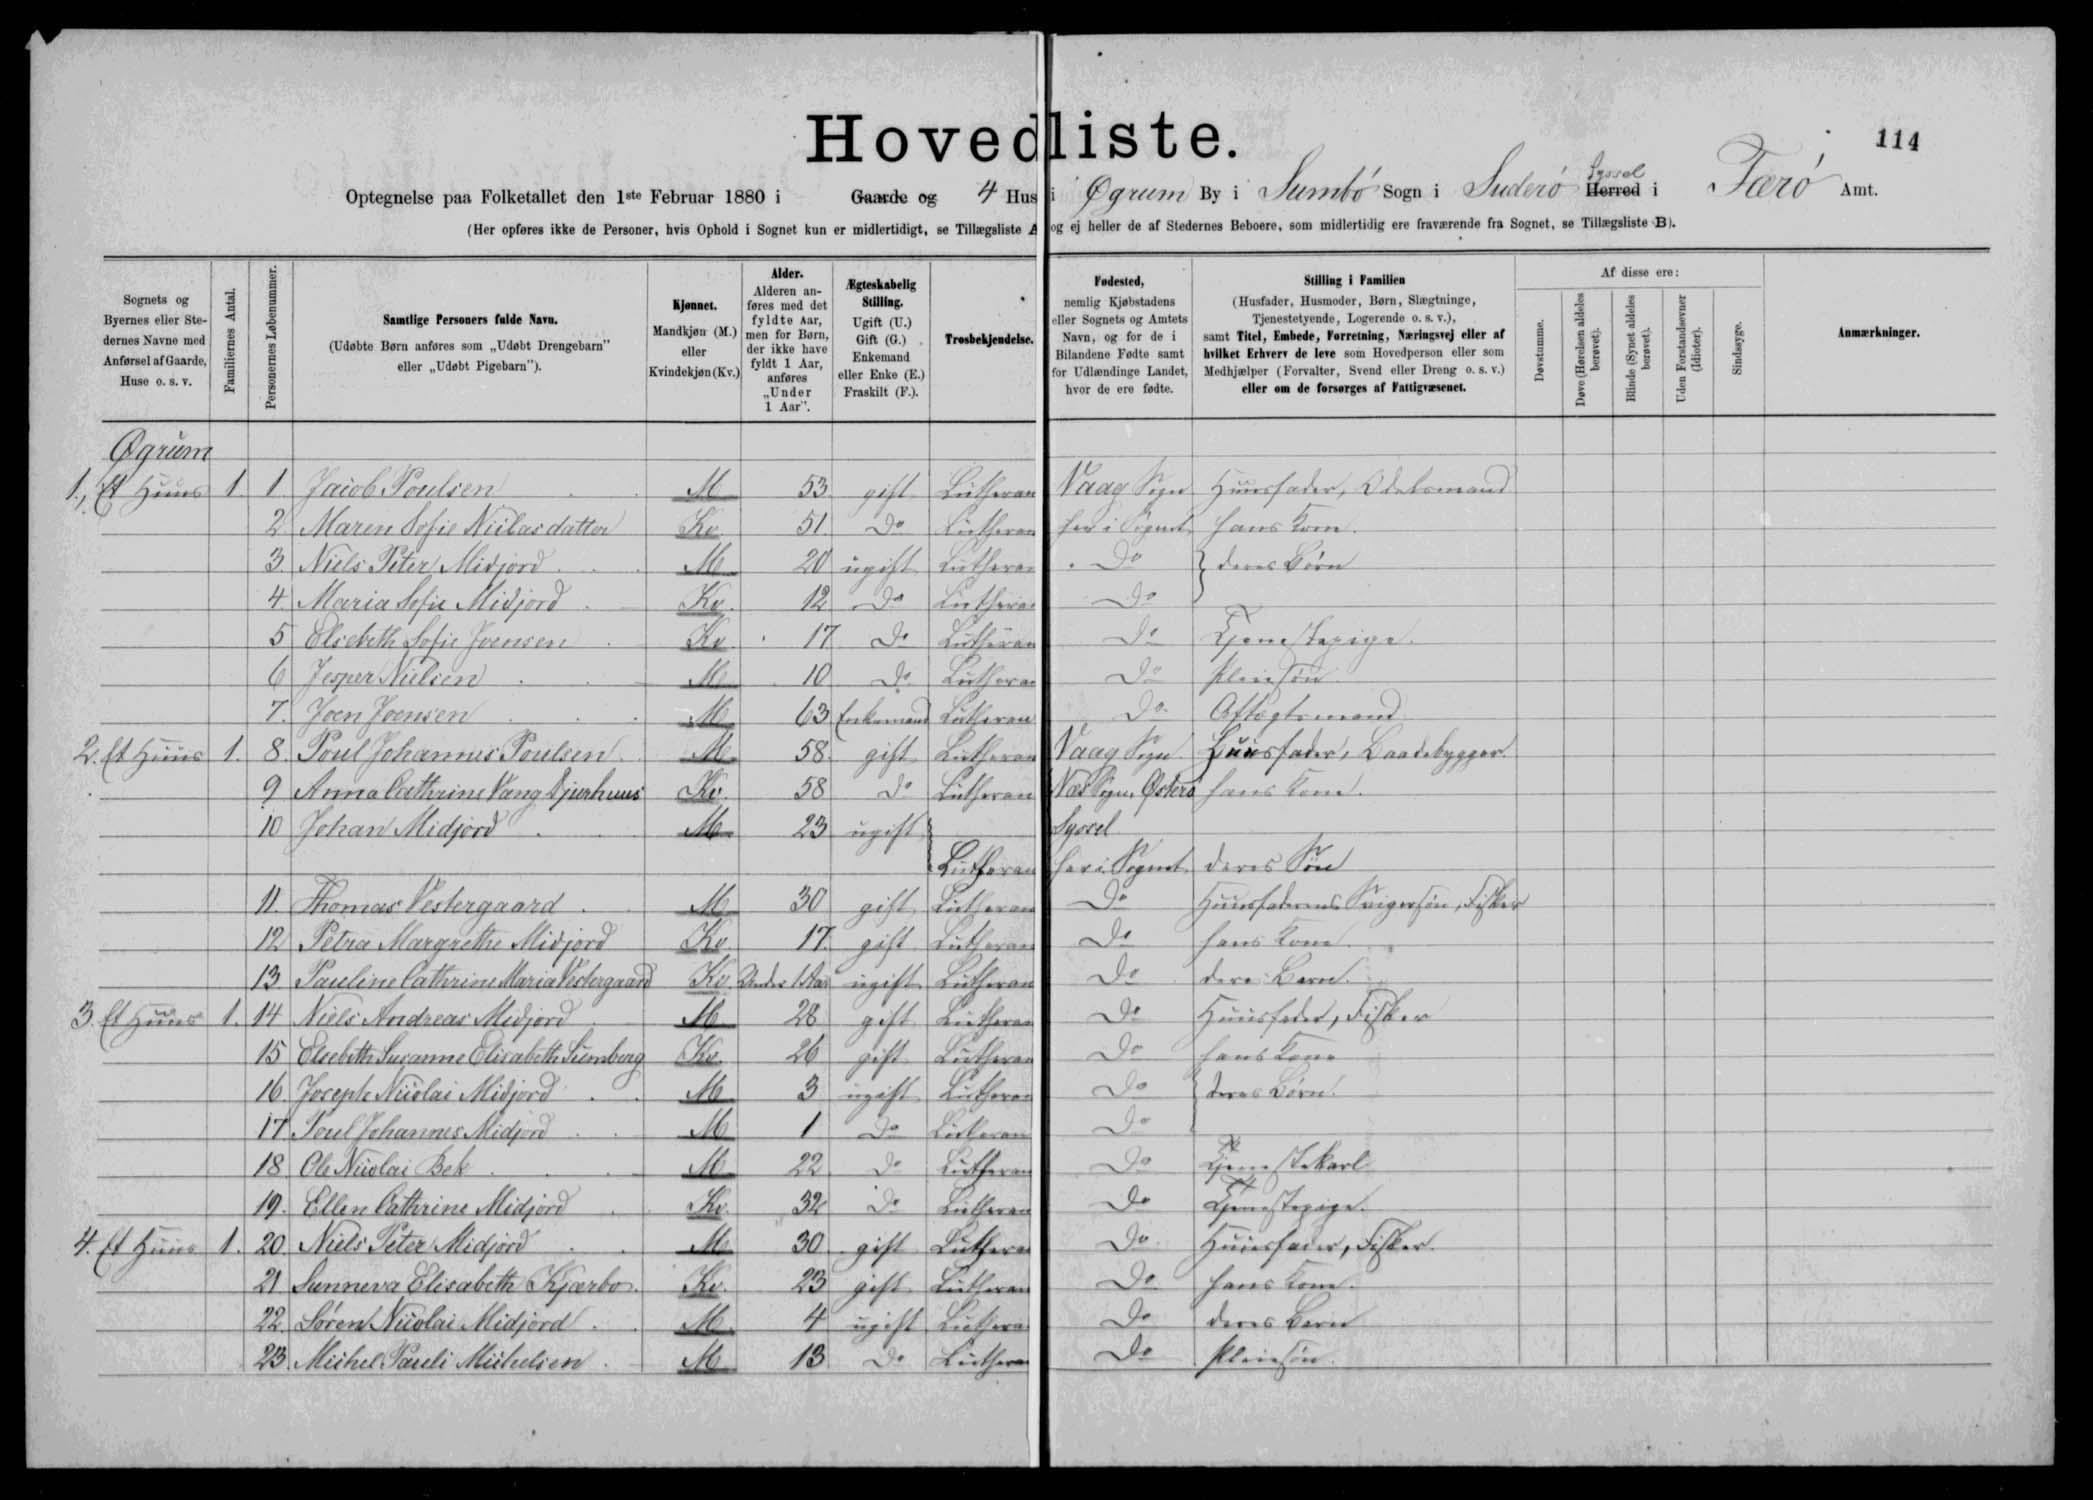 114
Hovedliste.
Optegnelse paa Folketallet den 1ste Februar 1880 i Gaarde og 4 Hus i Øgrum By i Sumbø Sogn i Suderø Herred Syssel i Færø Amt.
(Her opføres ikke de Personer, hvis Ophold i Sognet kun er midlertidigt, se Tillægsliste A og ej heller de af Stedernes Beboere, som midlertidig ere fraværende fra Sognet, se Tillægsliste B).
Sognets og Byernes eller Stedernes Navne med Anførsel af Gaarde, Huse o. s. v.
Familiernes Antal.
Personernes Løbenummer.
Samtlige Personers fulde Navn. (Udøbte Børn anføres som „Udøbt Drengebarn" eller „Udøbt Pigebarn").
Kjønnet. Mandkjøn (M.) eller Kvindekjøn (Kv.)
Alder. Alderen anføres med det fyldte Aar, men for Børn, der ikke have fyldt 1 Aar, anføres „Under 1 Aar".
Ægteskabelig Stilling. Ugift (U.) Gift (G.) Enkemand eller Enke (E.) Fraskilt (F.).
Trosbekjendelse.
Fødested, nemlig Kjøbstadens eller Sognets og Amtets Navn, og for de i Bilandene Fødte samt for Udlændinge Landet, hvor de ere fødte.
Stilling i Familien (Husfader, Husmoder, Børn, Slægtninge, Tjenestetyende, Logerende o. s. v.), samt Titel, Embede, Forretning, Næringsvej eller af hvilket Erhverv de leve som Hovedperson eller som Medhjælper (Forvalter, Svend eller Dreng o. s. v.) eller om de forsørges af Fattigvæsenet.
Af disse ere:
Døvstumme.
Døve (Hørelsen aldeles berøvet).
Blinde (Synet aldeles berøvet).
Uden Forstandsevner (Idioter).
Sindssyge.
Anmærkninger.
Øgrum
1., Et Huus 1. 1. Jacob Poulsen M 53 gift Lutheran Vaag Sogn Huusfader, Odelsmand
2 Maren Sofie Nicilasdatter Kv 51. Do Lutheran her i Sognet hans Kone.
3. Niels Peter Midjord M 20 ugift Lutheran Do } deres Børn
4. Maria Sofie Midjord Kv. 12 Do Lutheran Do
5 Elsebeth Sofie Joensen Kv. 17 Do Lutheran Do Tjenestepige.
6 Jesper Nielsen M 10 Do Lutheran Do Pleiesøn
7. Joen Joensen M 63 Enkemand Lutheran Do Aftægtsmand
2. Et Huus 1. 8. Poul Johannes Poulsen M 58. gift Lutheran Vaag Sogn. Huusfader, Baadebygger.
9 Anna Cathrine Vang Djurhuus Kv. 58 Do Lutheran Næs Sogn, Østerø hans Kone.
10 Johan Midjord M 23 ugift Syssel
Lutheran her i Sognet deres Søn
11. Thomas Vestergaard M 30 gift Lutheran Do Huusfaderens Svigersøn, Fisker
12 Petra Margrethe Midjord Kv. 17. gift Lutheran Do hans Kone.
13 Pauline Cathrine Maria Vestergaard Kv. Under 1 Aar ugift Lutheran Do deres Barn.
3. Et Huus 1. 14 Niels Andreas Midjord M 28 gift Lutheran Do Huusfader, Fisker
15 Elsebeth Susanne Elisabeth Sumberg Kv. 26 gift Lutheran Do hans Kone
16. Joseph Nicolai Midjord M 3 ugift Lutheran Do } deres Børn.
17. Poul Johannes Midjord M 1 Do Lutheran Do
18. Ole Nicolai Bek M 22 Do Lutheran Do Tjenestekarl
19. Ellen Cathrine Midjord Kv. 32 Do Lutheran Do Tjenestepige.
4. Et Huus 1. 20. Niels Peter Midjord M 30 gift Lutheran Do Huusfader, Fisker.
21 Sunneva Elisabeth Kjærbo. Kv. 23 gift Lutheran Do hans Kone.
22. Søren Nicolai Midjord M. 4 ugift Lutheran Do deres Barn
23. Michel Pauli Michelsen M 13 Do Lutheran Do Pleiesøn.